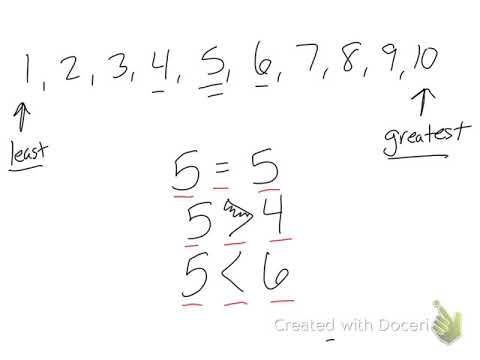 1, 2, 3, 4, 5, 6, 7, 8, 9, 10
least
greatest
5 = 5
5 > 4
5 < 6
Created with Doceri